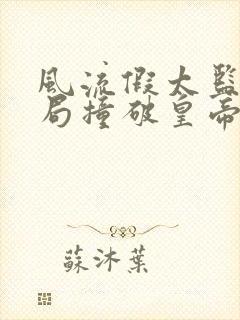 風流假太監
局撞破皇帝
蘇沐葉